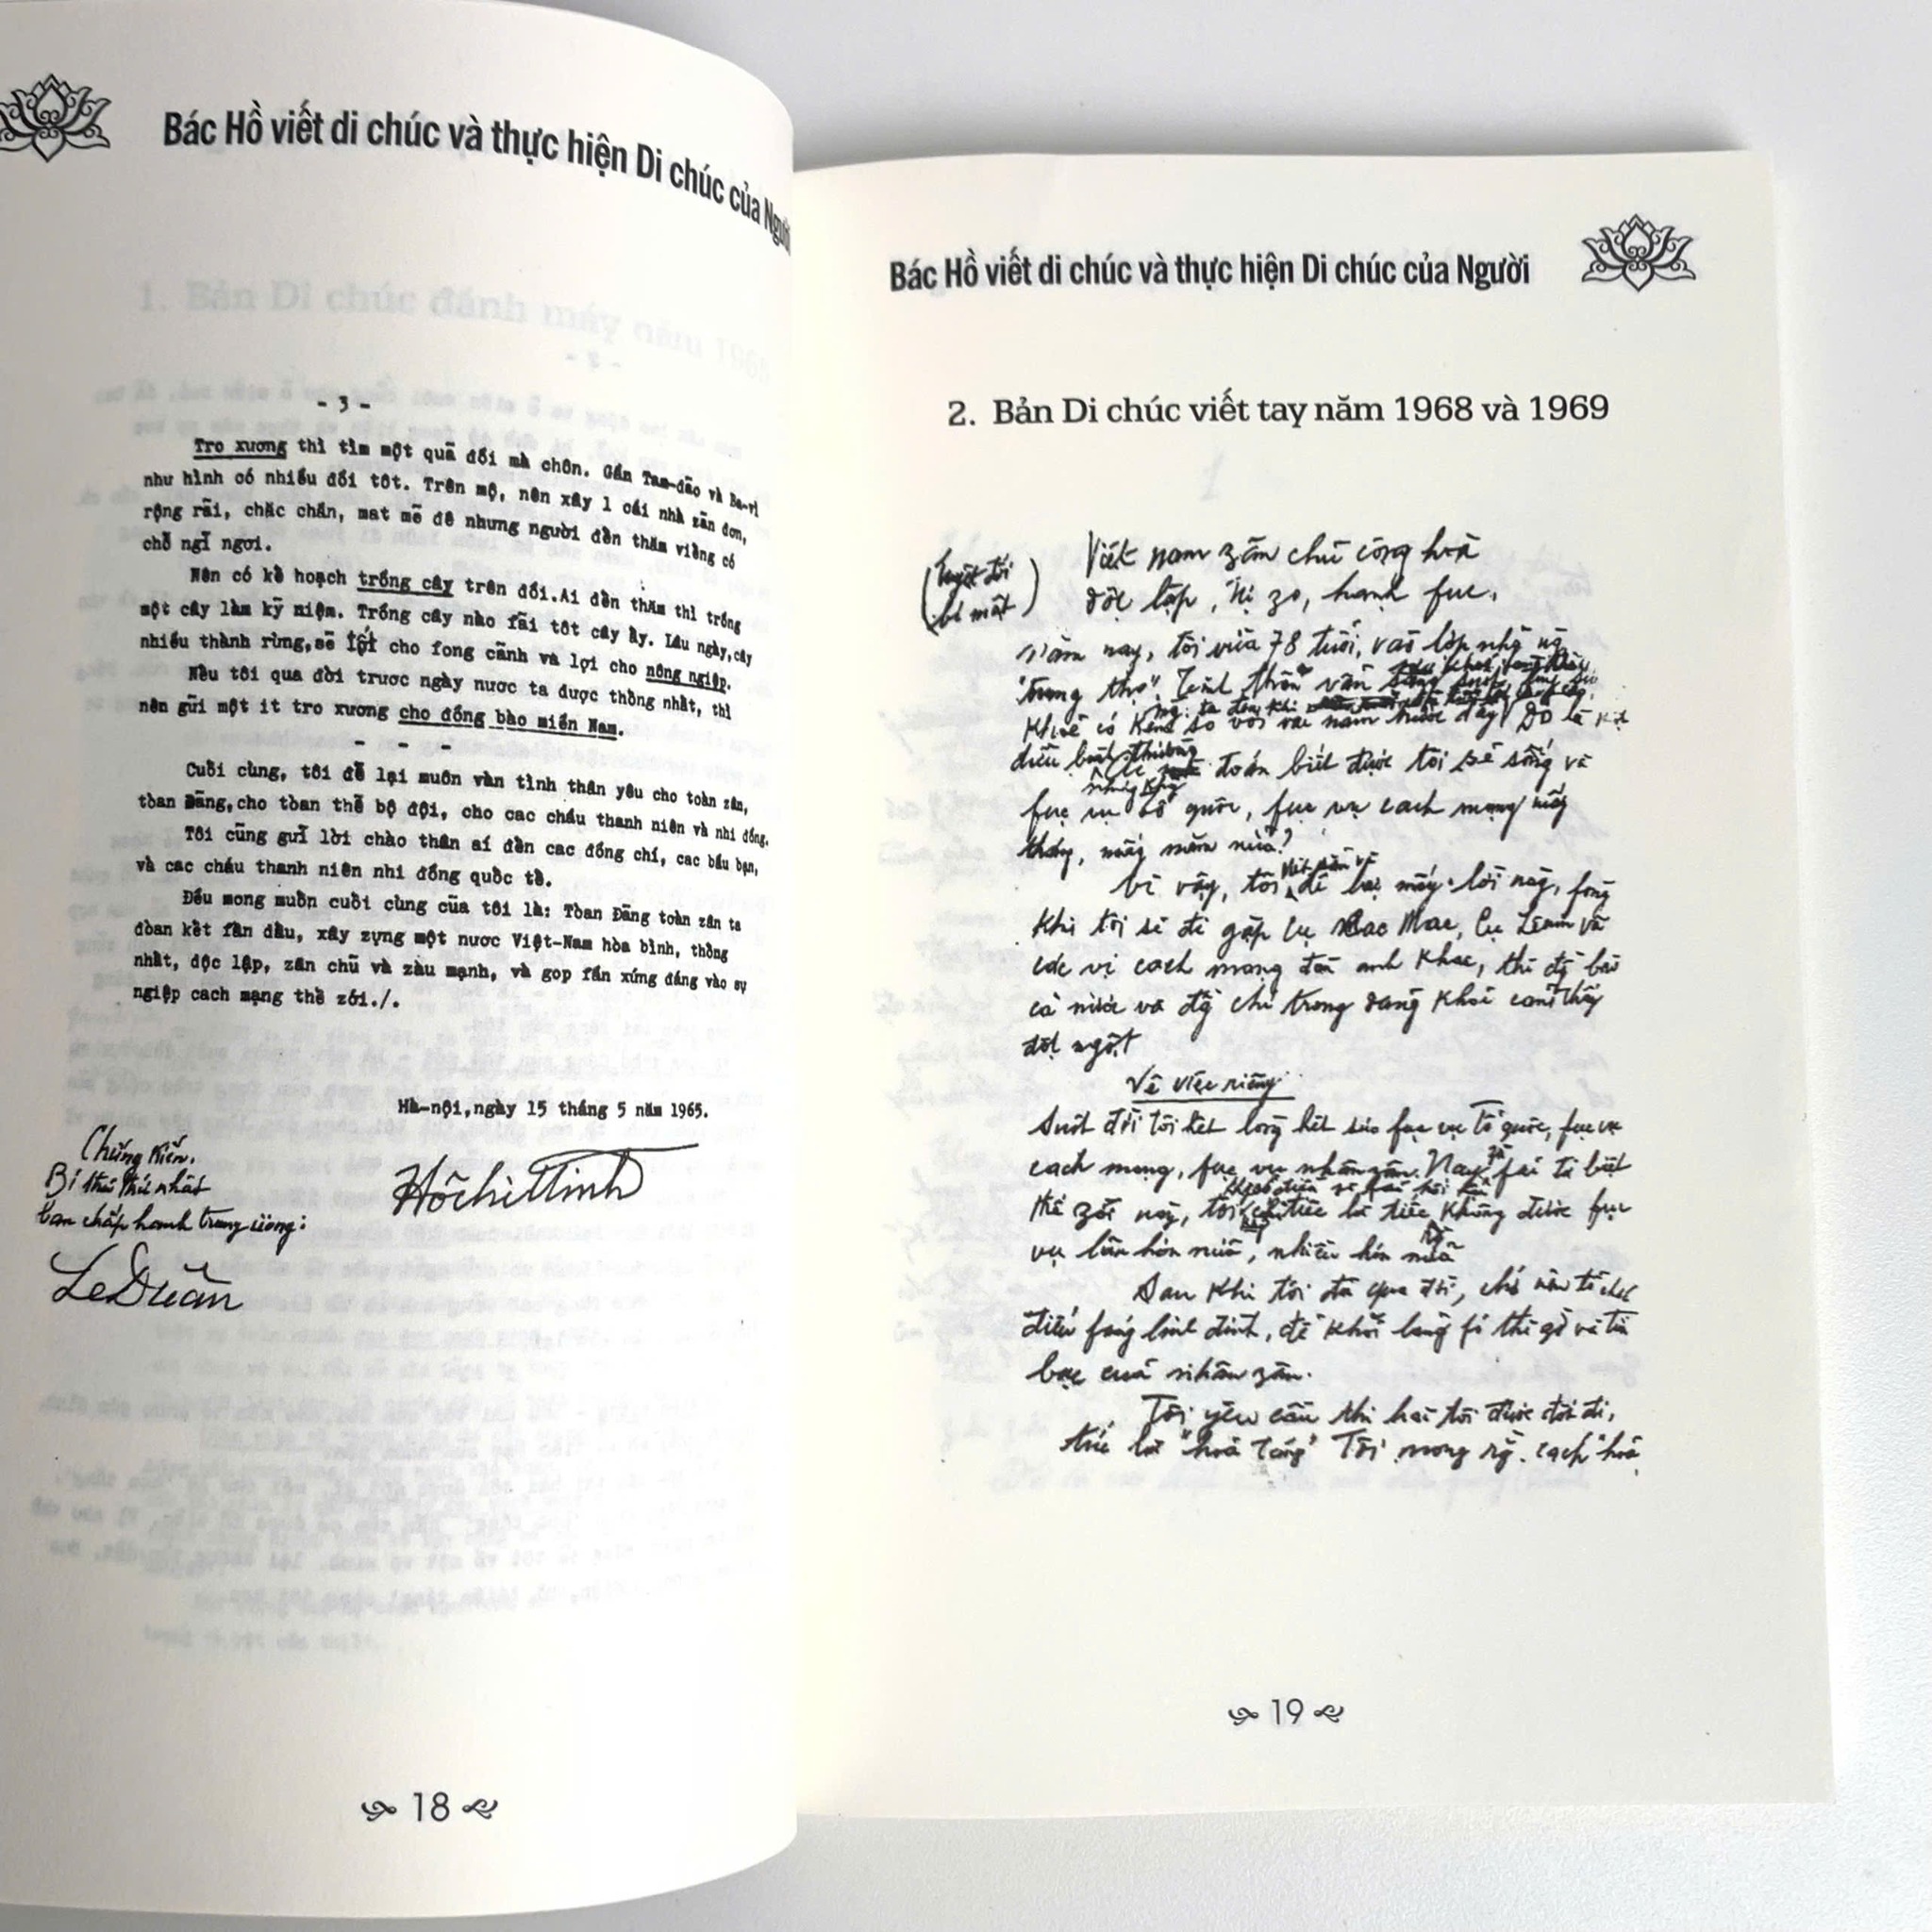 Bác Hồ viết di chúc và thực hiện Di chúc của Người
- 3 -
Tro xương thì tìm một quả đồi mà chôn. Gần Tam-đảo và Ba-vì
như hình có nhiều đồi tôt. Trên mộ, nên xây 1 cái nhà zản đơn,
rộng rãi, chăc chắn, mat mẽ để nhưng người đến thăm viếng có
chỗ ngỉ ngơi.
Nên có kế hoạch trồng cây trên đồi.Ai đến thăm thì trồng
một cây làm kỷ niệm. Trồng cây nào fải tôt cây ấy. Lâu ngày,cây
nhiều thành rừng,sẽ tốt cho fong cảnh và lợi cho nông ngiệp.
Nếu tôi qua đời trươc ngày nươc ta được thông nhất, thì
nên gửi một it tro xương cho đồng bào miền Nam.
- - -
Cuối cùng, tôi để lại muôn vàn tình thân yêu cho toàn zân,
tòan Đảng,cho tòan thể bộ đội, cho cac cháu thanh niên và nhi đồng.
Tôi cũng gưỉ lời chào thân aí đến cac đồng chí, cac bầu bạn,
và cac cháu thanh niên nhi đồng quốc tế.
Đều mong muốn cuối cùng của tôi là: Tòan Đảng toàn zân ta
đòan kết fấn đấu, xây zựng một nươc Việt-Nam hòa bình, thống
nhất, độc lập, zân chủ và zàu mạnh, và gop fần xứng đáng vào sự
ngiệp cach mạng thế zới./.
Hà-nội,ngày 15 tháng 5 năm 1965.
Chứng kiến.
Bí thư thứ nhất
ban chấp hanh trung ương:
HồchiMinh
LeDuẩn
18
Bác Hồ viết di chúc và thực hiện Di chúc của Người
2. Bản Di chúc viết tay năm 1968 và 1969
1
(tuyệt đối
bí mật)
Việt nam zân chủ cộng hoà
độc lập, tự zo, hạnh fuc.
Năm nay, tôi vừa 78 tuổi, vào lớp những
"trung thọ". Tinh thần vẫn
khoẻ có kém so với vài năm trước đây. Đó là
điều bình thường
đoán biết được tôi sẽ sống và
fục vụ tổ quốc, fục vụ cach mạng mấy
tháng, mấy năm nữa?
Vì vậy, tôi viết sẵn và để lại mấy lời này, fòng
khi tôi sẽ đi gặp Cụ Cac Mac, Cụ Lenin và
cac vị cach mạng đàn anh khac, thì đồng bào
cả nước và đồng chí trong đảng khỏi cảm thấy
đột ngột
Về việc riêng
Suốt đời tôi hết lòng hết sưc fục vụ Tổ quốc, fục vụ
cach mạng, fục vụ nhân zân. Nay zù fải từ biệt
thế zới này, tôi không có điều gì fải hối hận
chỉ tiếc là tiếc không được fục
vụ lâu hơn nữa, nhiều hơn nữa
Sau khi tôi đã qua đời, chớ nên tổ chưc
điếu fúng linh đình, để khỏi lãng fí thì giờ và tiền
bạc của nhân zân.
Tôi yêu cầu thi hài tôi được đốt đi,
tức là "hoả táng" Tôi mong rằng cach "hoả
19